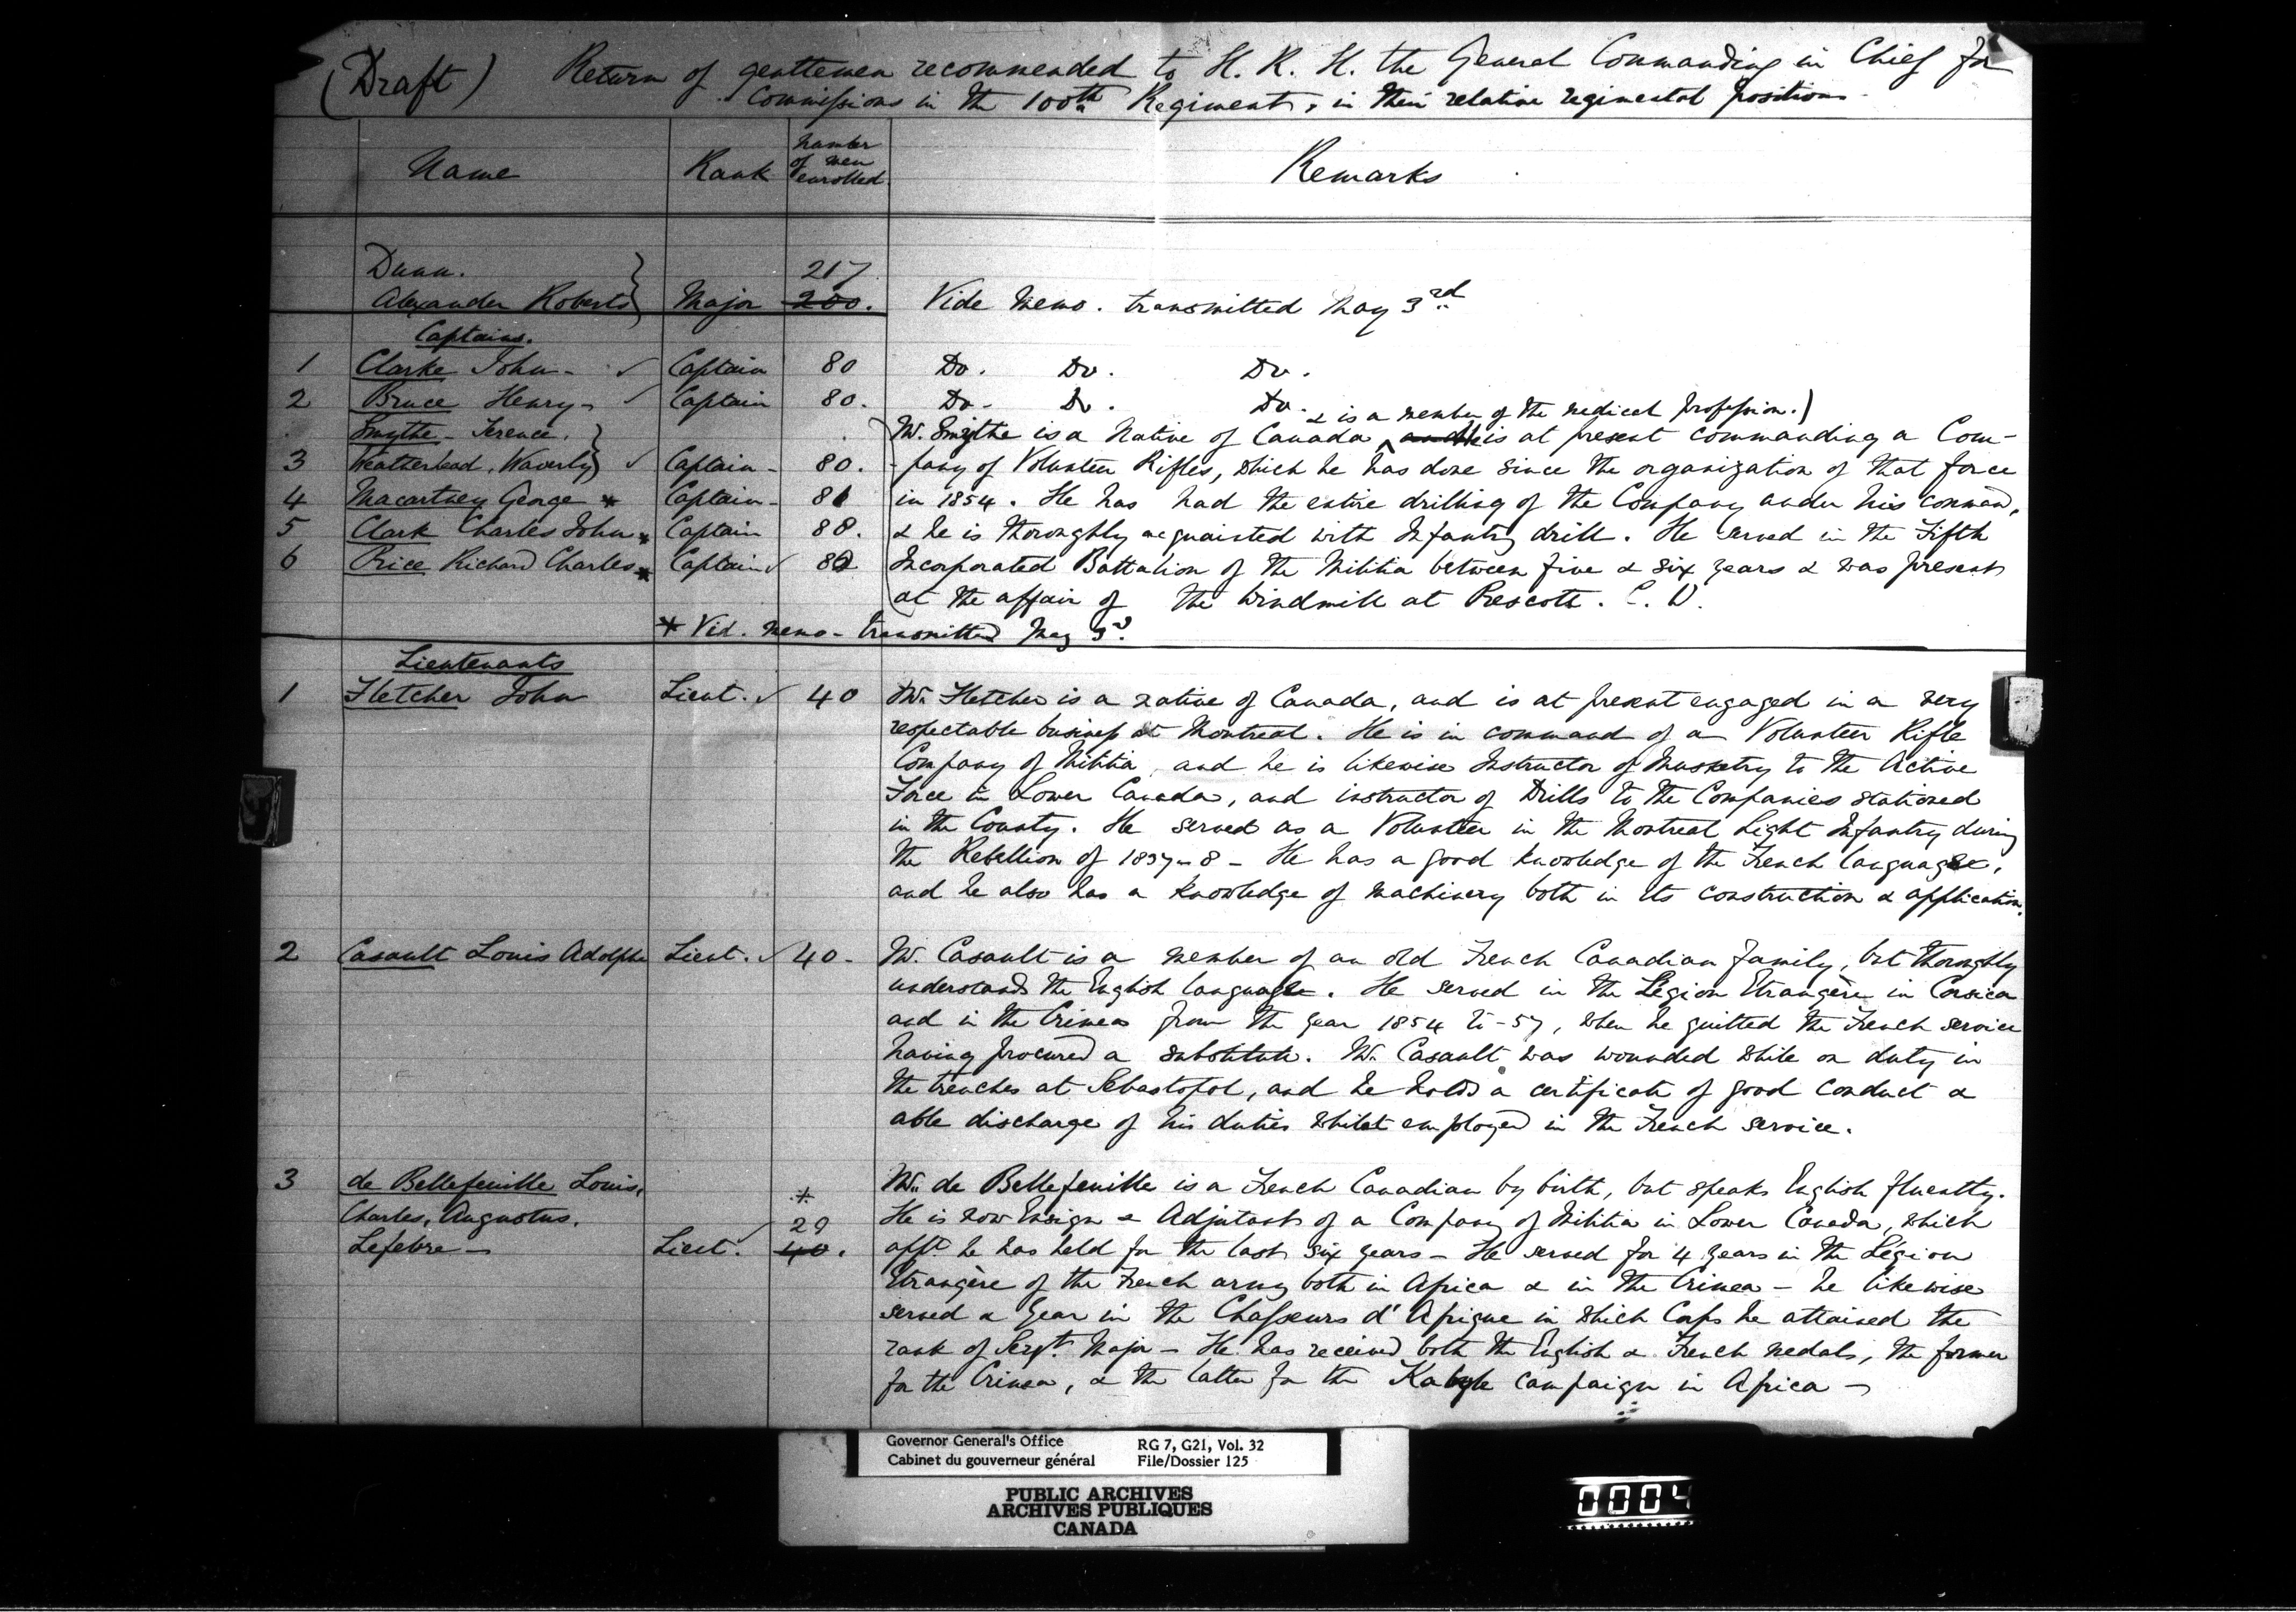 (Draft) Return of gentlemen recommended to H. R. H. the General Commanding in Chief for
Commissions in the 100th Regiment, in their relative regimental positions
Name Rank Number of men enrolled Remarks
Dunn. 217
Alexander Roberts Major 200. Vide Memo. transmitted May 3rd
Captains.
1 Clarke John - Captain 80 Do. Do. Do.
2 Bruce Henry - Captain 80. Do. Do. Do.
& is a member of the medical profession.)
Smythe - Terence. Mr. Smythe is a Native of Canada is at present commanding a Com-
3 Weatherhead, Waverly Captain - 80. -pany of Volunteer Rifles, which he has done since the organization of that force
4 Macartney George * Captain - 81 in 1854. He has had the entire drilling of the Company under his command,
5 Clark Charles John * Captain 88. & he is thoroughly acquainted with Infantry drill. He served in the Fifth
6 Price Richard Charles * Captain 82 Incorporated Battalion of the Militia between five & six years & was present
at the affair of the Windmill at Prescott. C. W.
* Vid. memo - transmitted May 3d.
Lieutenants
1 Fletcher John Lieut. 40 Mr. Fletcher is a native of Canada, and is at present engaged in a very
respectable business at Montreal. He is in command of a Volunteer Rifle
Company of Militia, and he is likewise Instructor of Musketry to the Active
Force in Lower Canada, and instructor of Drills to the Companies stationed
in the County. He served as a Volunteer in the Montreal Light Infantry during
the Rebellion of 1837-8 - He has a good knowledge of the French language,
and he also has a knowledge of machinery both in its construction & application.
2 Casault Louis Adolphe Lieut. 40 - Mr. Casault is a member of an old French Canadian family, but thoroughly
understands the English language. He served in the Légion Etrangère in Corsica
and in the Crimea from the year 1854 to -57, when he quitted the French service
having procured a substitute. Mr. Casault was wounded while on duty in
the trenches at Sebastopol, and he holds a certificate of good conduct &
able discharge of his duties whilst employed in the French service.
3 de Bellefeuille Louis, * Mr. de Bellefeuille is a French Canadian by birth, but speaks English fluently.
Charles, Augustus. 29 He is now Ensign & Adjutant of a Company of Militia in Lower Canada, which
Lefebre - Lieut. 40. appt. he has held for the last six years - He served for 4 years in the Légion
Etrangère of the French army both in Africa & in the Crimea - he likewise
served a year in the Chasseurs d'Afrique in which Corps he attained the
rank of Sergt. Major - He has received both the English & French medals, the former
for the Crimea, & the latter for the Kabyle campaign in Africa -
Governor General's Office RG 7, G21, Vol. 32
Cabinet du gouverneur général File/Dossier 125
PUBLIC ARCHIVES
ARCHIVES PUBLIQUES
CANADA
0004